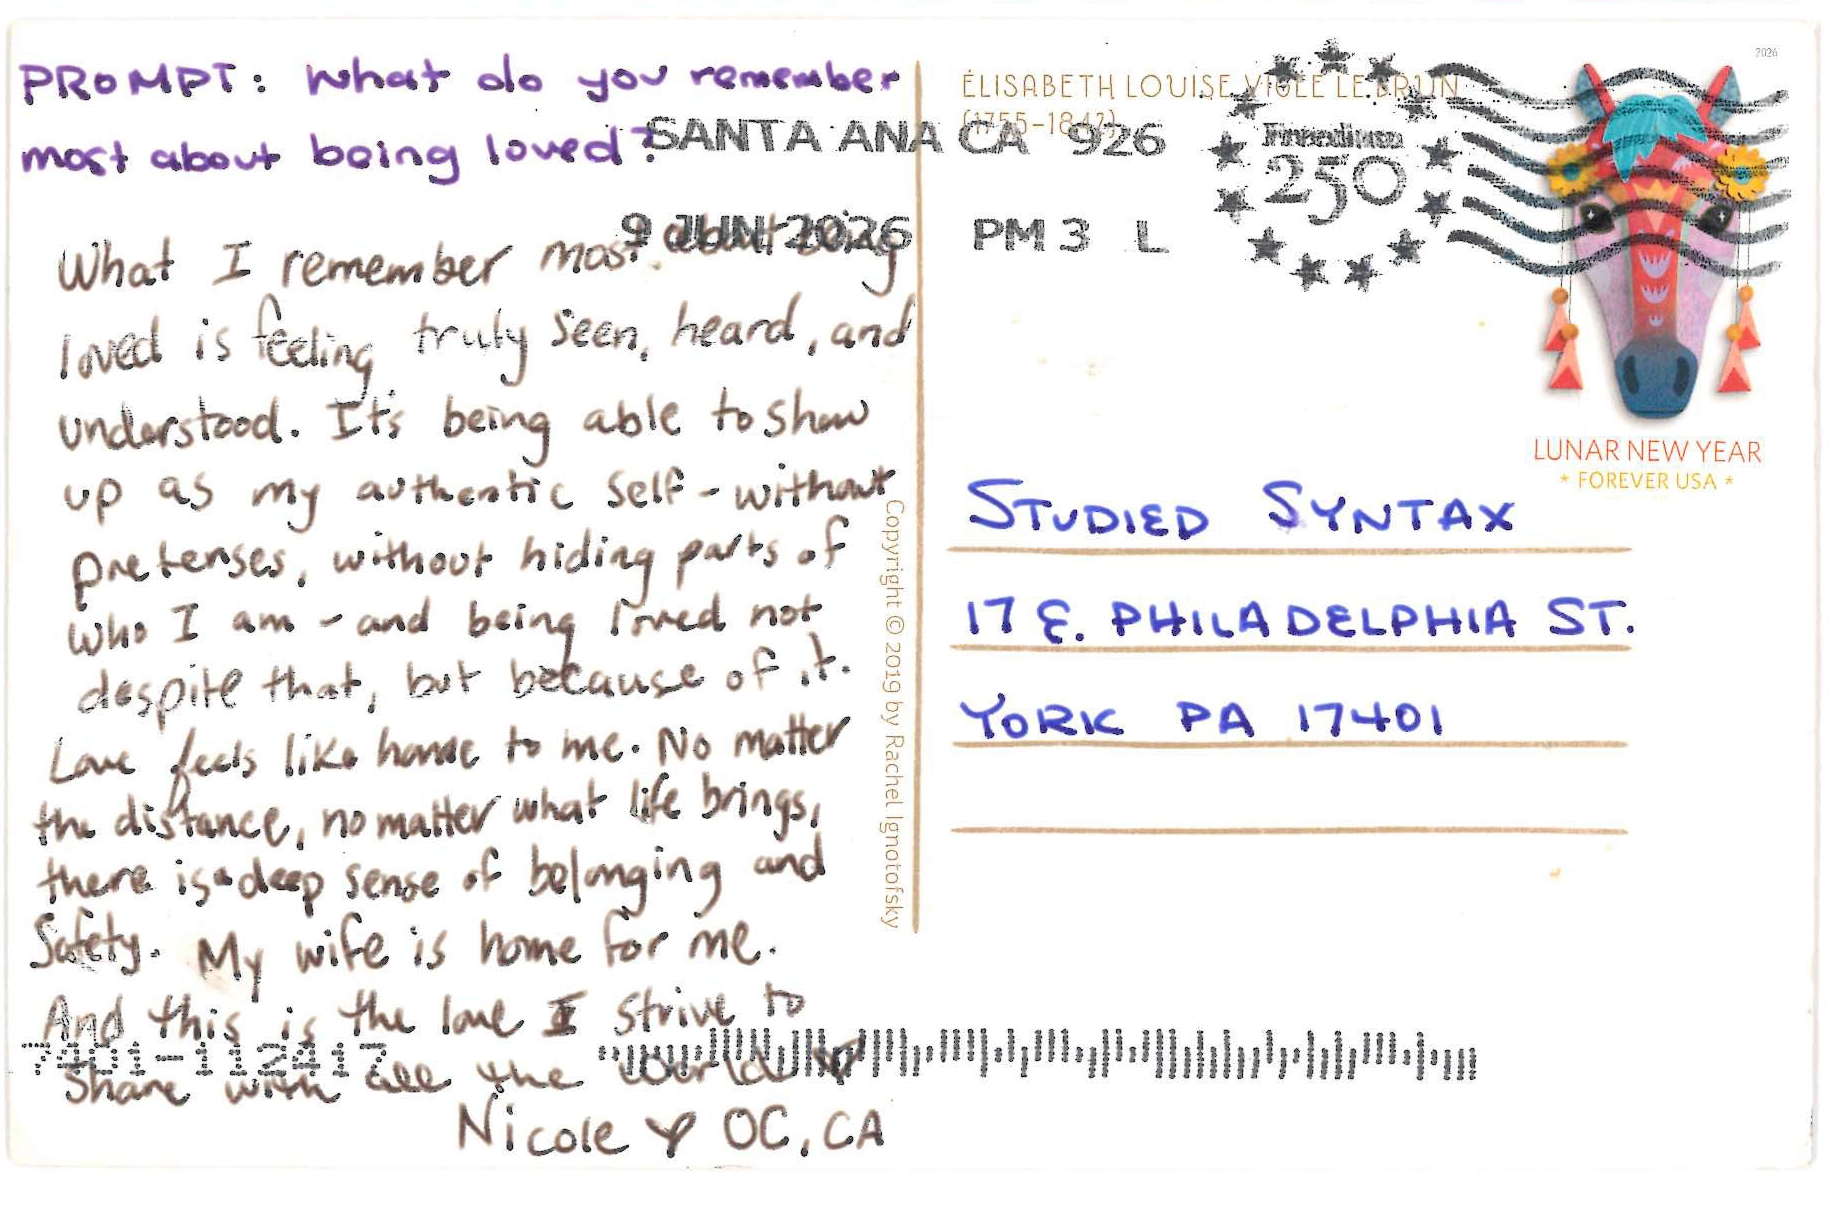 PROMPT: What do you remember
most about being loved?
What I remember most about being
loved is feeling truly seen, heard, and
understood. It's being able to show
up as my authentic self - without
pretenses, without hiding parts of
who I am - and being loved not
despite that, but because of it.
Love feels like home to me. No matter
the distance, no matter what life brings,
there is a deep sense of belonging and
safety. My wife is home for me.
And this is the love I strive to
share with all the world
Nicole OC, CA
7401-112417
Copyright © 2019 by Rachel Ignotofsky
ÉLISABETH LOUISE VIGÉE LE BRUN
(1755-1842)
SANTA ANA CA 926
9 JUN 2026 PM 3 L
Freedom
250
2026
LUNAR NEW YEAR
* FOREVER USA *
STUDIED SYNTAX
17 E. PHILADELPHIA ST.
YORK PA 17401